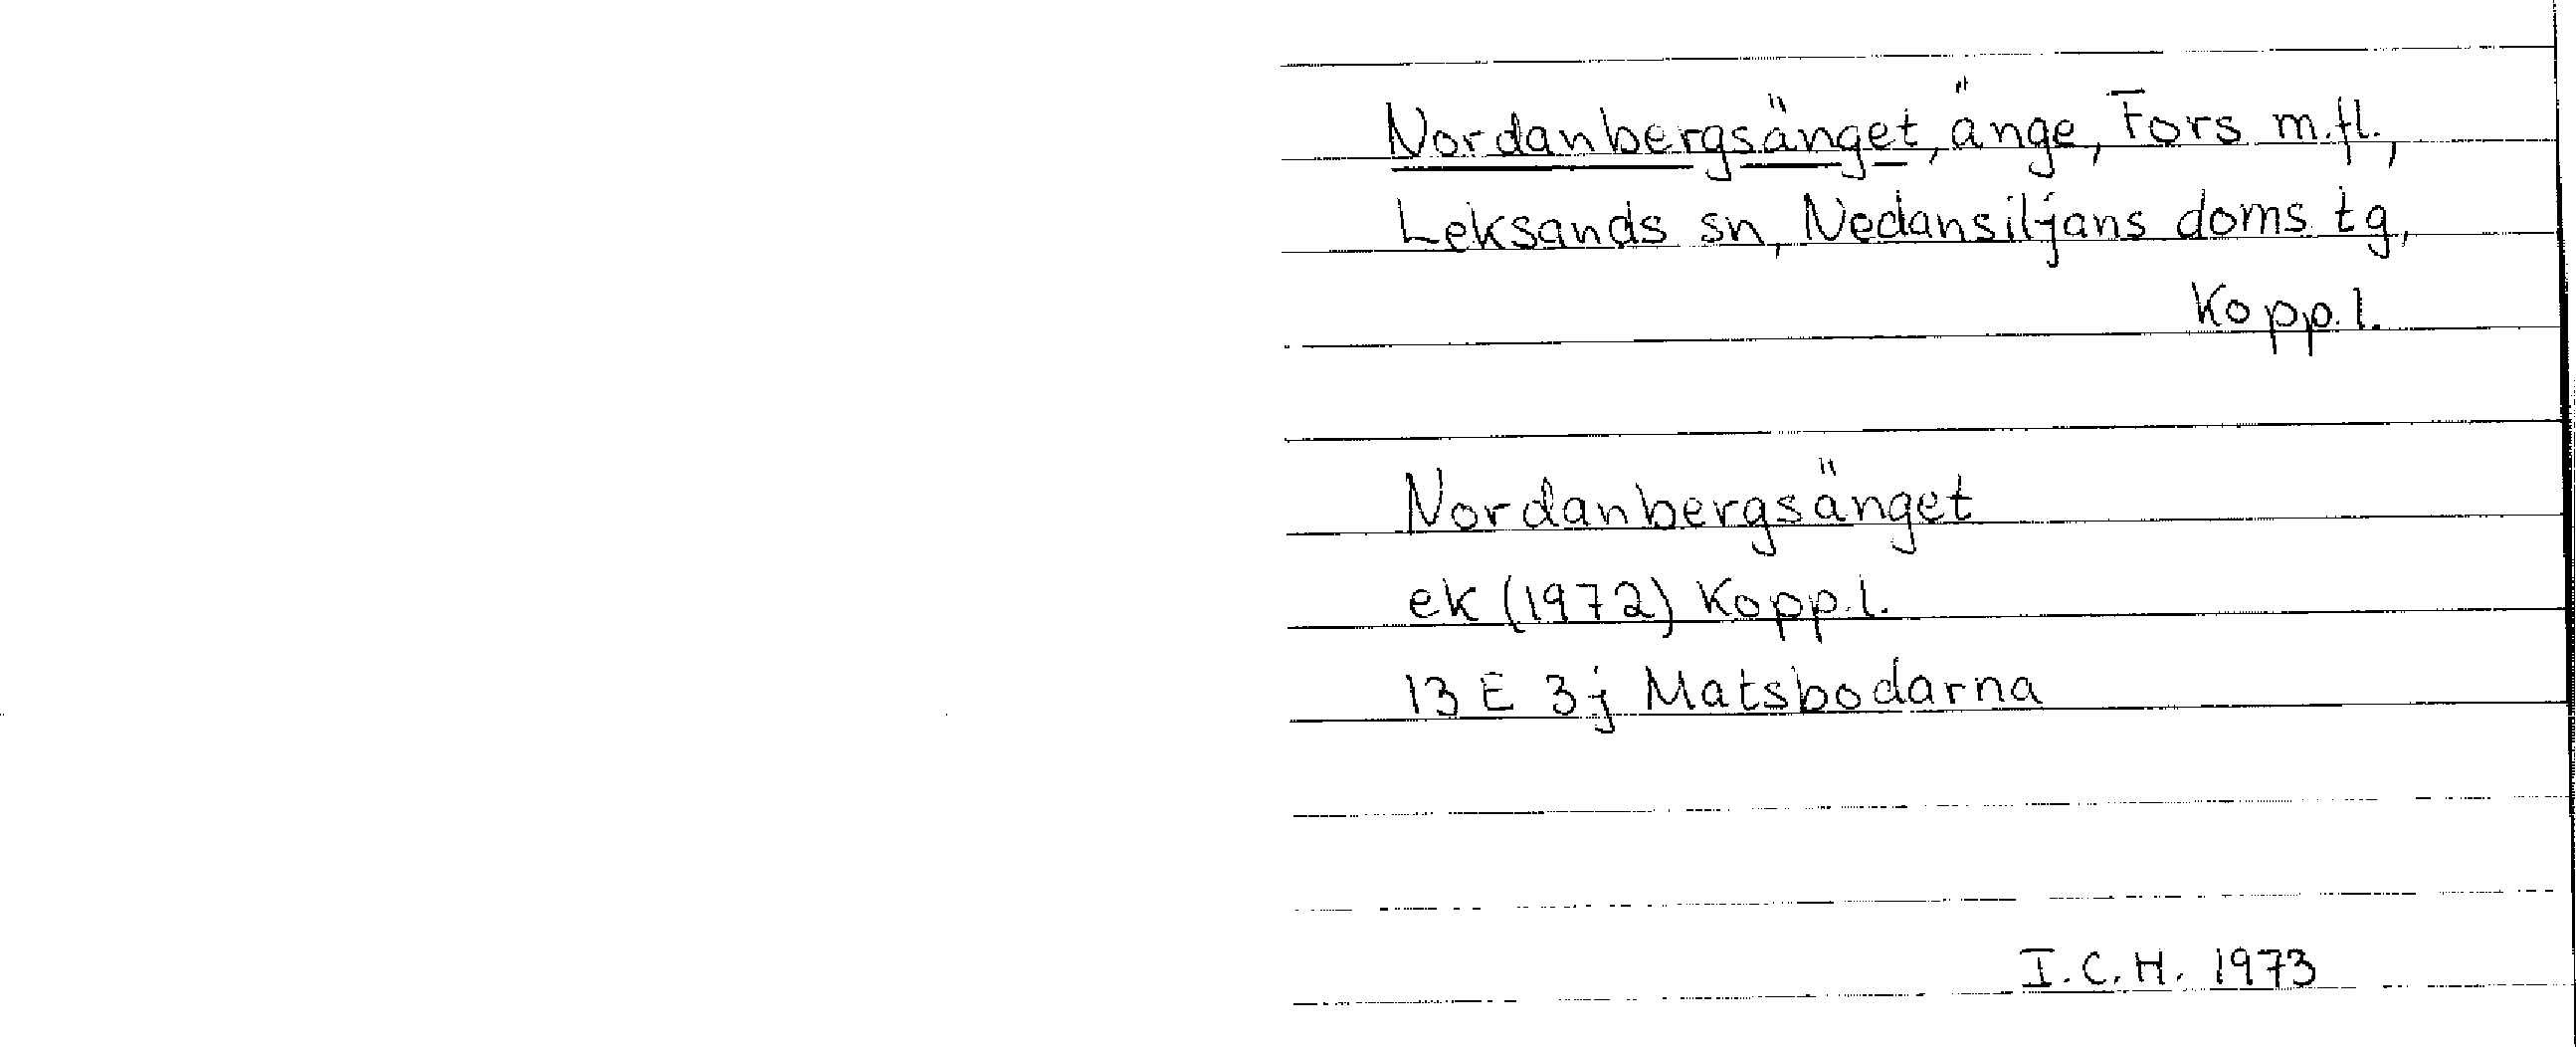 Nordanbergsänget, änge, Fors m.fl.,
Leksands sn, Nedansiljans doms. tg,
Kopp.l.
Nordanbergsänget
ek (1972) Kopp.l.
13 E 3j Matsbodarna
I.C.H. 1973